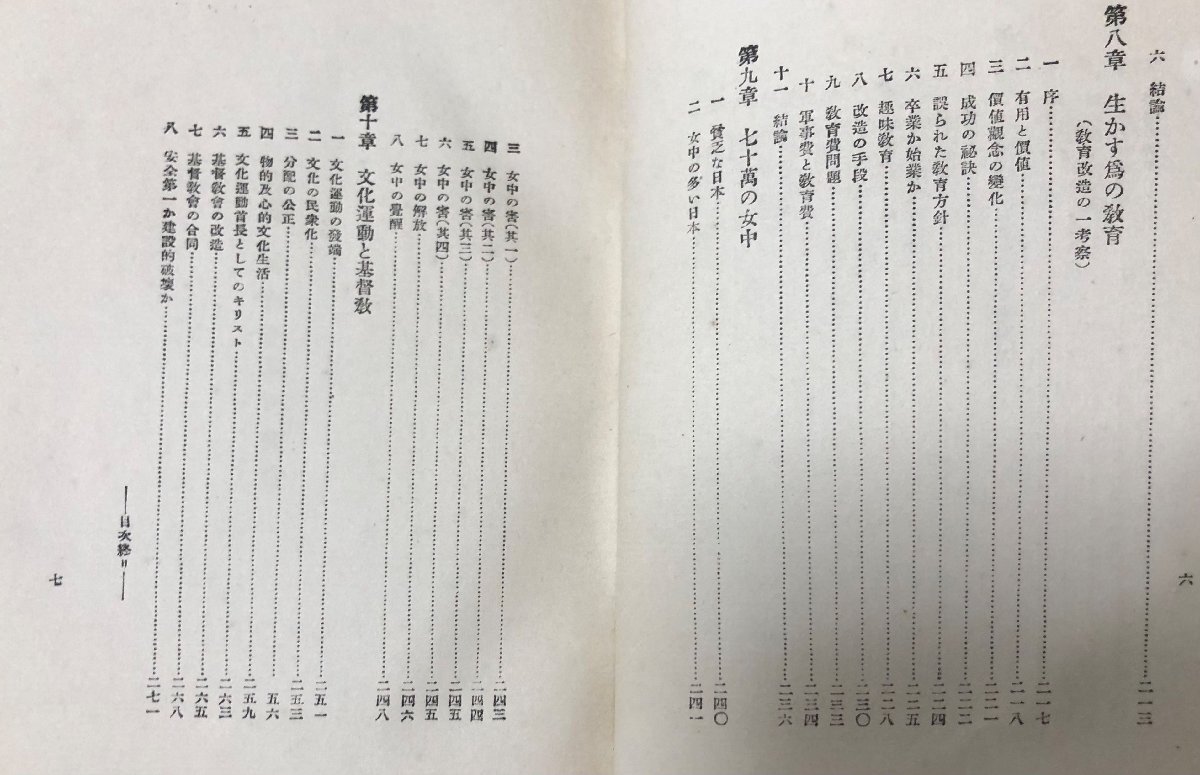 六 結論……二一三
第八章 生かす爲の敎育
(敎育改造の一考察)
一 序……二一七
二 有用と價値……二一八
三 價値觀念の變化……二二一
四 成功の祕訣……二二二
五 誤られた敎育方針……二二四
六 卒業か始業か……二二五
七 趣味敎育……二二八
八 改造の手段……二三〇
九 敎育費問題……二三三
十 軍事費と敎育費……二三四
十一 結論……二三六
第九章 七十萬の女中
一 貧乏な日本……二四〇
二 女中の多い日本……二四一
六
三 女中の害(其一)……二四三
四 女中の害(其二)……二四四
五 女中の害(其三)……二四五
六 女中の害(其四)……二四五
七 女中の解放……二四六
八 女中の覺醒……二四八
第十章 文化運動と基督敎
一 文化運動の發端……二五一
二 文化の民衆化……二五三
三 分配の公正
四 物的及心的文化生活……五六
五 文化運動首長としてのキリスト……二五九
六 基督敎會の改造……二六三
七 基督敎會の合同……二六五
八 安全第一か建設的破壞か……二六八
二七一
――目次終〃――
七